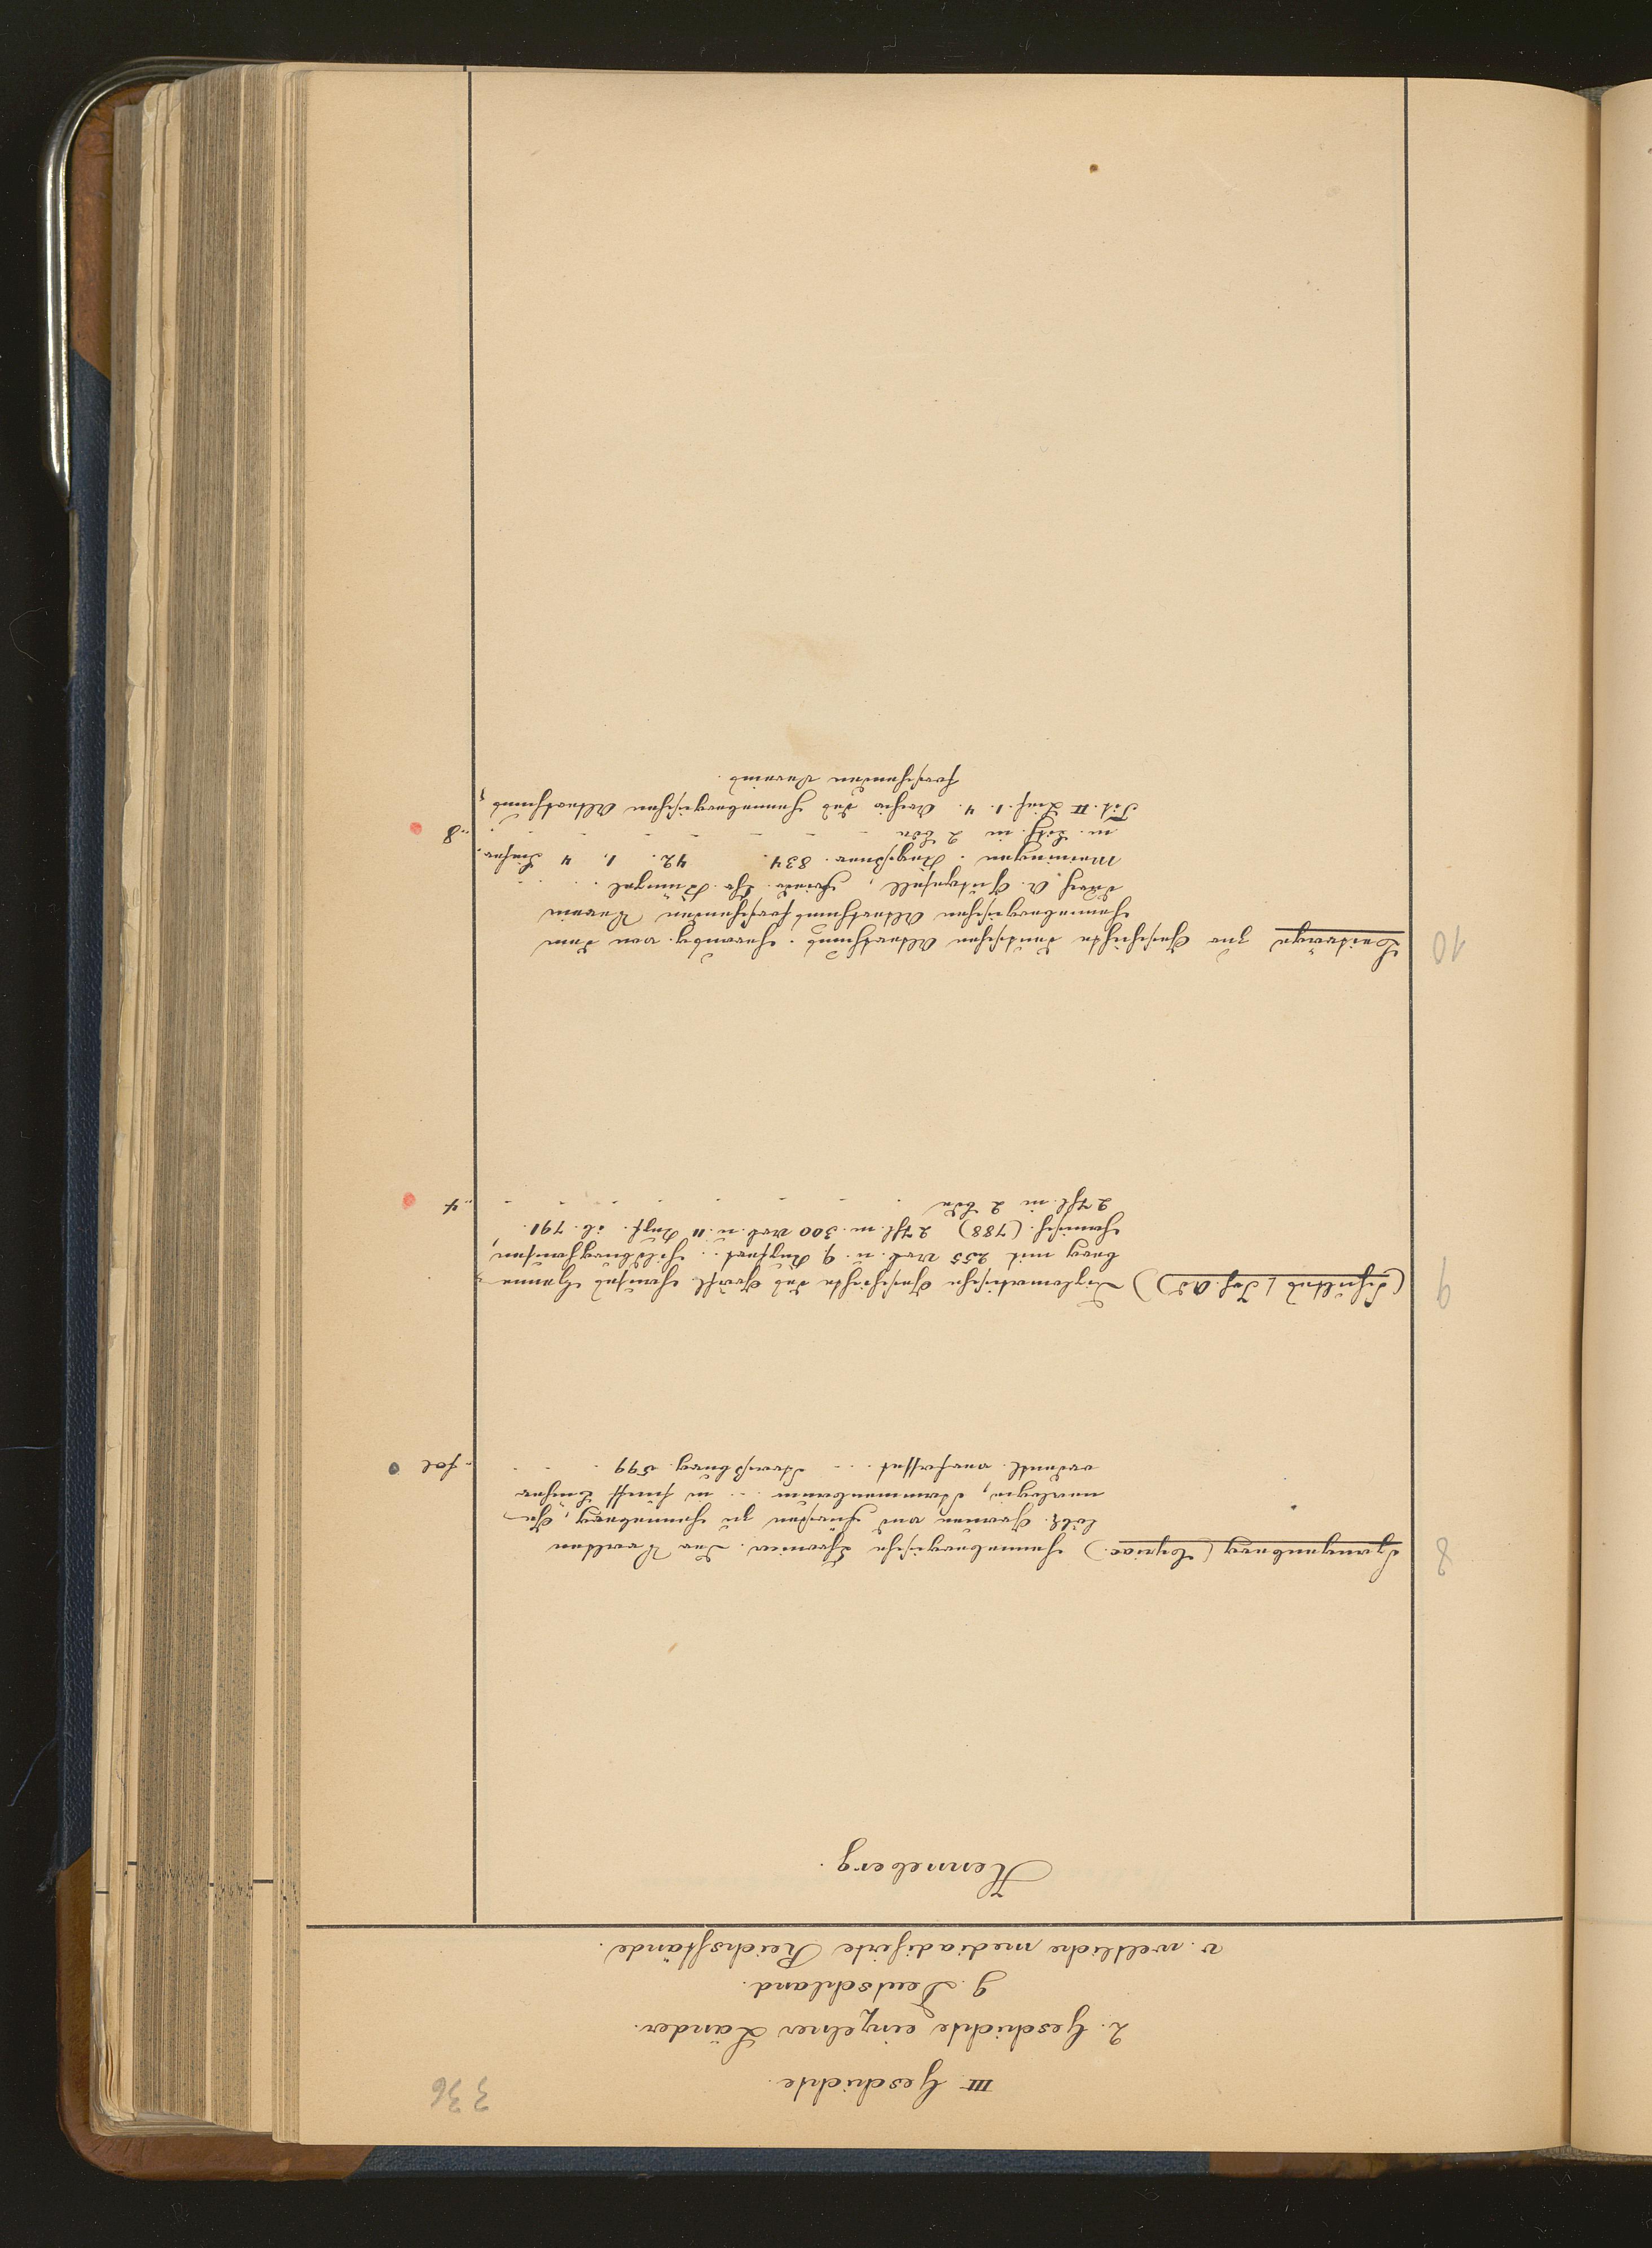 336
III. Geschichte.
2. Geschichte einzelner Länder.
g. Deutschland.
v. weltliche mediadisirte Reichsstände.
Henneberg.
8 Spangenberg (Cyriac.) Hennebergische Chronica. Der Uralten
löbl. Grauen und Fürsten zu Henneberg, Ge-
nealogia, Stammenbaum ... in fünff Bücher
ordentl. verfasset ... Straßburg. 599 . . . fol
9 (Schultes / Joh. Ad) Diplomatische Geschichte des Gräfl. Hauses Henne-
berg mit 255 Urk. u. 9 Kupfert. .. Hildburghausen,
Hanisch. (788) 2 Thl. m. 300 Urk. u. 11 Kupf. ib. 791.
2 Thl. in 2 Bdn . . . . . . . 4.
10 Beiträge zur Geschichte deutschen Alterthums. Herausg. von dem
Hennebergischen Alterthumsforschenden Verein
durch A. Gutgesell, Chr.
Meiningen. Keyßner. 834. 42. 1. 4 Liefer.
m. Lith. in 2 Bdn - - - - - - 8.
Tit. II Lief. 1. 4. Archiv des Hennebergischen Alterthums-
forschenden Vereins.